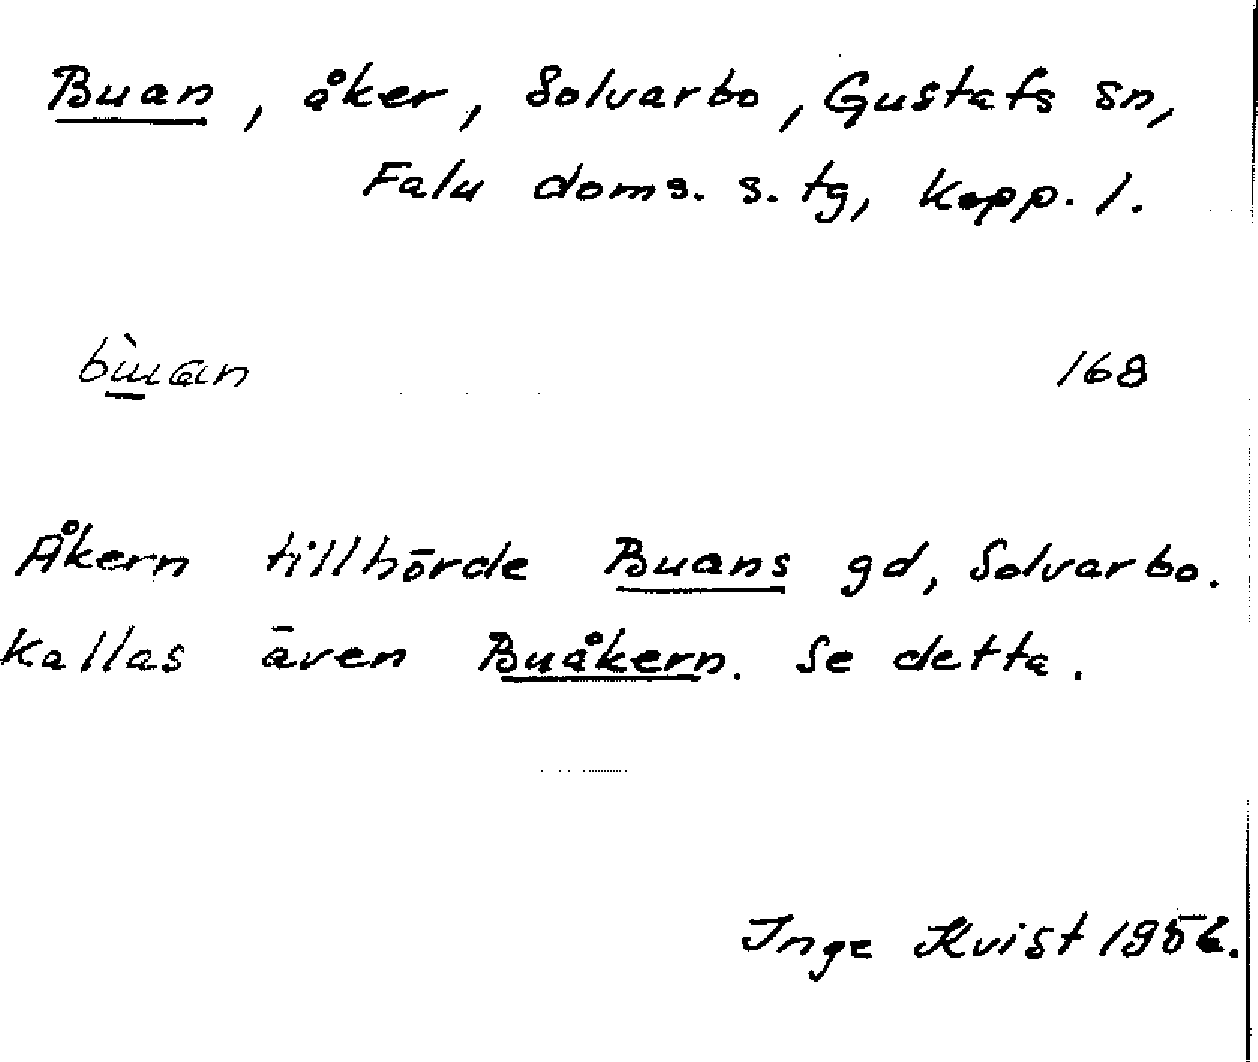 Buan, åker, Solvarbo, Gustafs sn,
Falu doms. s. tg, Kopp. l.
bùɯan 168
Åkern tillhörde Buans gd, Solvarbo.
Kallas även Buåkern. Se detta.
Inge Kvist 1956.